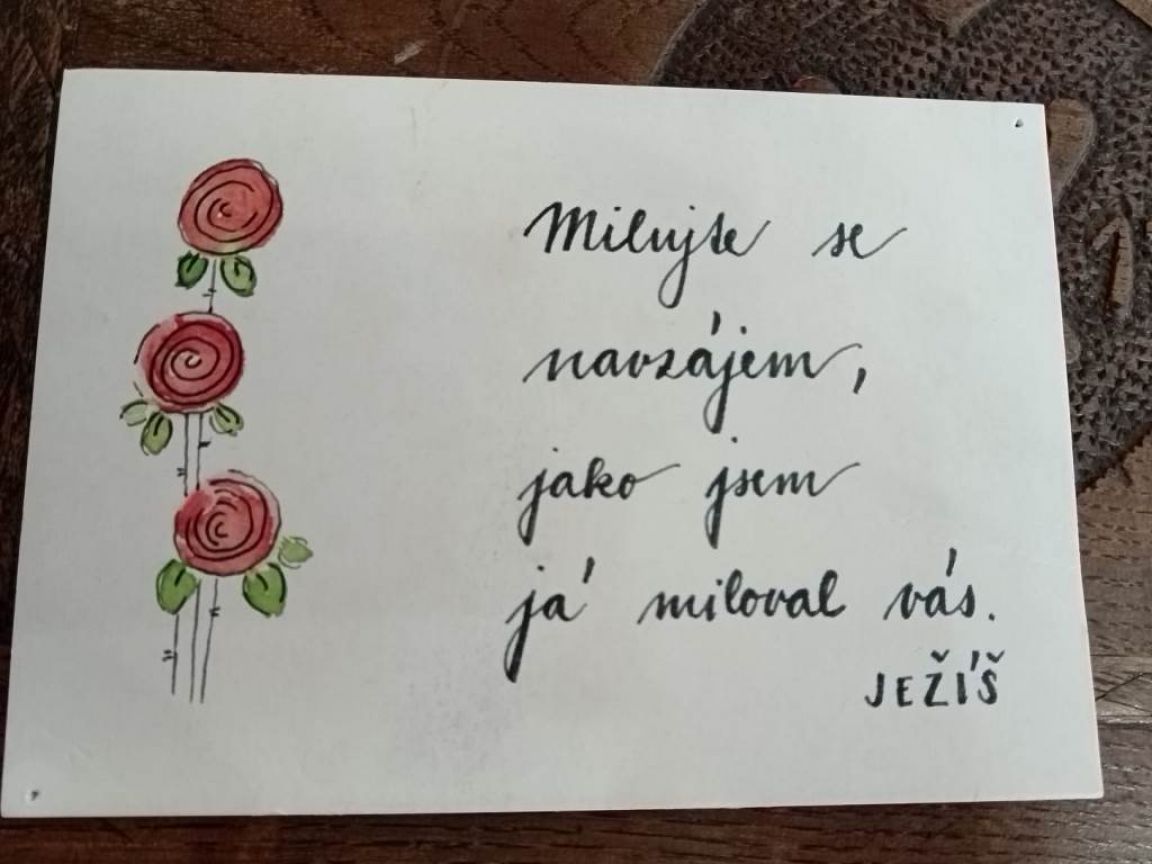 Milujte se
navzájem,
jako jsem
já miloval vás.
JEŽÍŠ